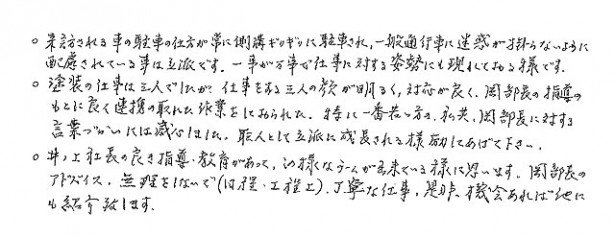 ○ 来訪される車の駐車の仕方が常に側溝ギリギリに駐車され、一般通行車に迷惑が掛らないように
配慮されている事は立派です。一事が万事で仕事に対する姿勢にも現れておる様です。
○ 塗装の仕事は三人でしたが、仕事をする三人の顔が明るく、対応が良く、岡部長の指導の
もとに良く連携の取れた作業をしておられた。特に一番若い方の、私共、岡部長に対する
言葉づかいには感心しました。職人として立派に成長される様励ましてあげて下さい。
○ 井ノ上社長の良き指導・教育があって、この様なチームが出来ている様に思います。岡部長の
アドバイス、無理をしないで(日程・工程上)、丁寧な仕事、是非、機会あれば他に
も紹介致します。